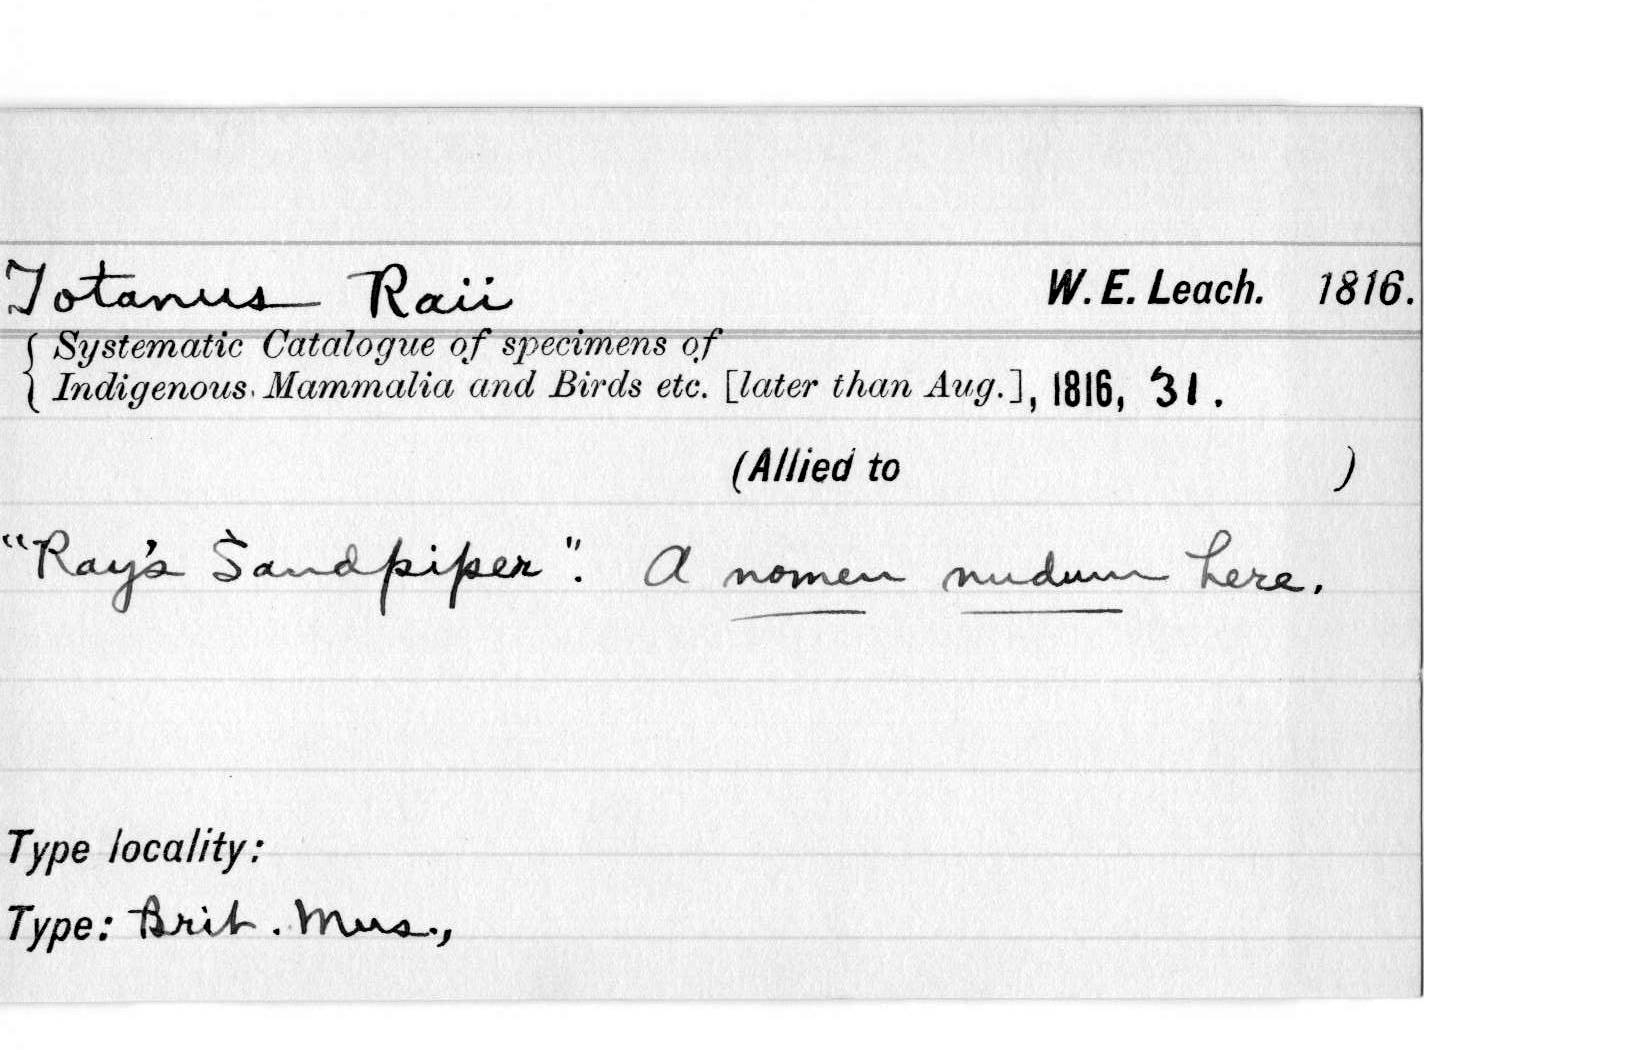 Totanus Raii W. E. Leach. 1816.
{ Systematic Catalogue of specimens of
Indigenous Mammalia and Birds etc. [later than Aug.], 1816, 31.
(Allied to )
"Ray's Sandpiper". A nomen nudum here.
Type locality:
Type: Brit. Mus.,